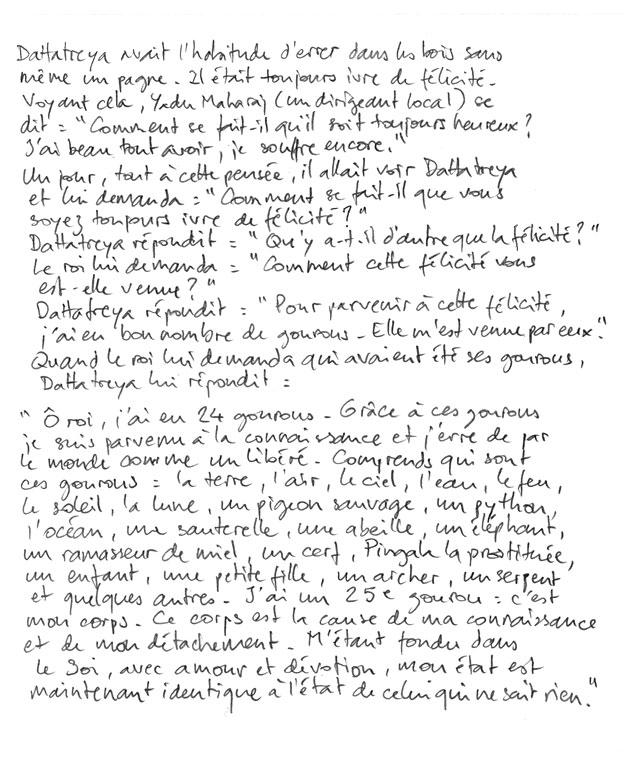 Dattatreya avait l'habitude d'errer dans les bois sans
même un pagne. Il était toujours ivre de félicité.
Voyant cela, Yadu Maharaj (un dirigeant local) se
dit : "Comment se fait-il qu'il soit toujours heureux?
J'ai beau tout avoir, je souffre encore."
Un jour, tout à cette pensée, il allait voir Dattatreya
et lui demanda : "Comment se fait-il que vous
soyez toujours ivre de félicité?"
Dattatreya répondit : "Qu'y a-t-il d'autre que la félicité?"
Le roi lui demanda : "Comment cette félicité vous
est-elle venue?"
Dattatreya répondit : "Pour parvenir à cette félicité,
j'ai eu bon nombre de gourous. Elle m'est venue par eux."
Quand le roi lui demanda qui avaient été ses gourous,
Dattatreya lui répondit :
"Ô roi, j'ai eu 24 gourous. Grâce à ces gourous
je suis parvenu à la connaissance et j'erre de par
le monde comme un libéré. Comprends qui sont
ces gourous : la terre, l'air, le ciel, l'eau, le feu,
le soleil, la lune, un pigeon sauvage, un python,
l'océan, une sauterelle, une abeille, un éléphant,
un ramasseur de miel, un cerf, Pingala la prostituée,
un enfant, une petite fille, un archer, un serpent
et quelques autres. J'ai un 25e gourou : c'est
mon corps. Ce corps est la cause de ma connaissance
et de mon détachement. M'étant fondu dans
le Soi, avec amour et dévotion, mon état est
maintenant identique à l'état de celui qui ne sait rien."